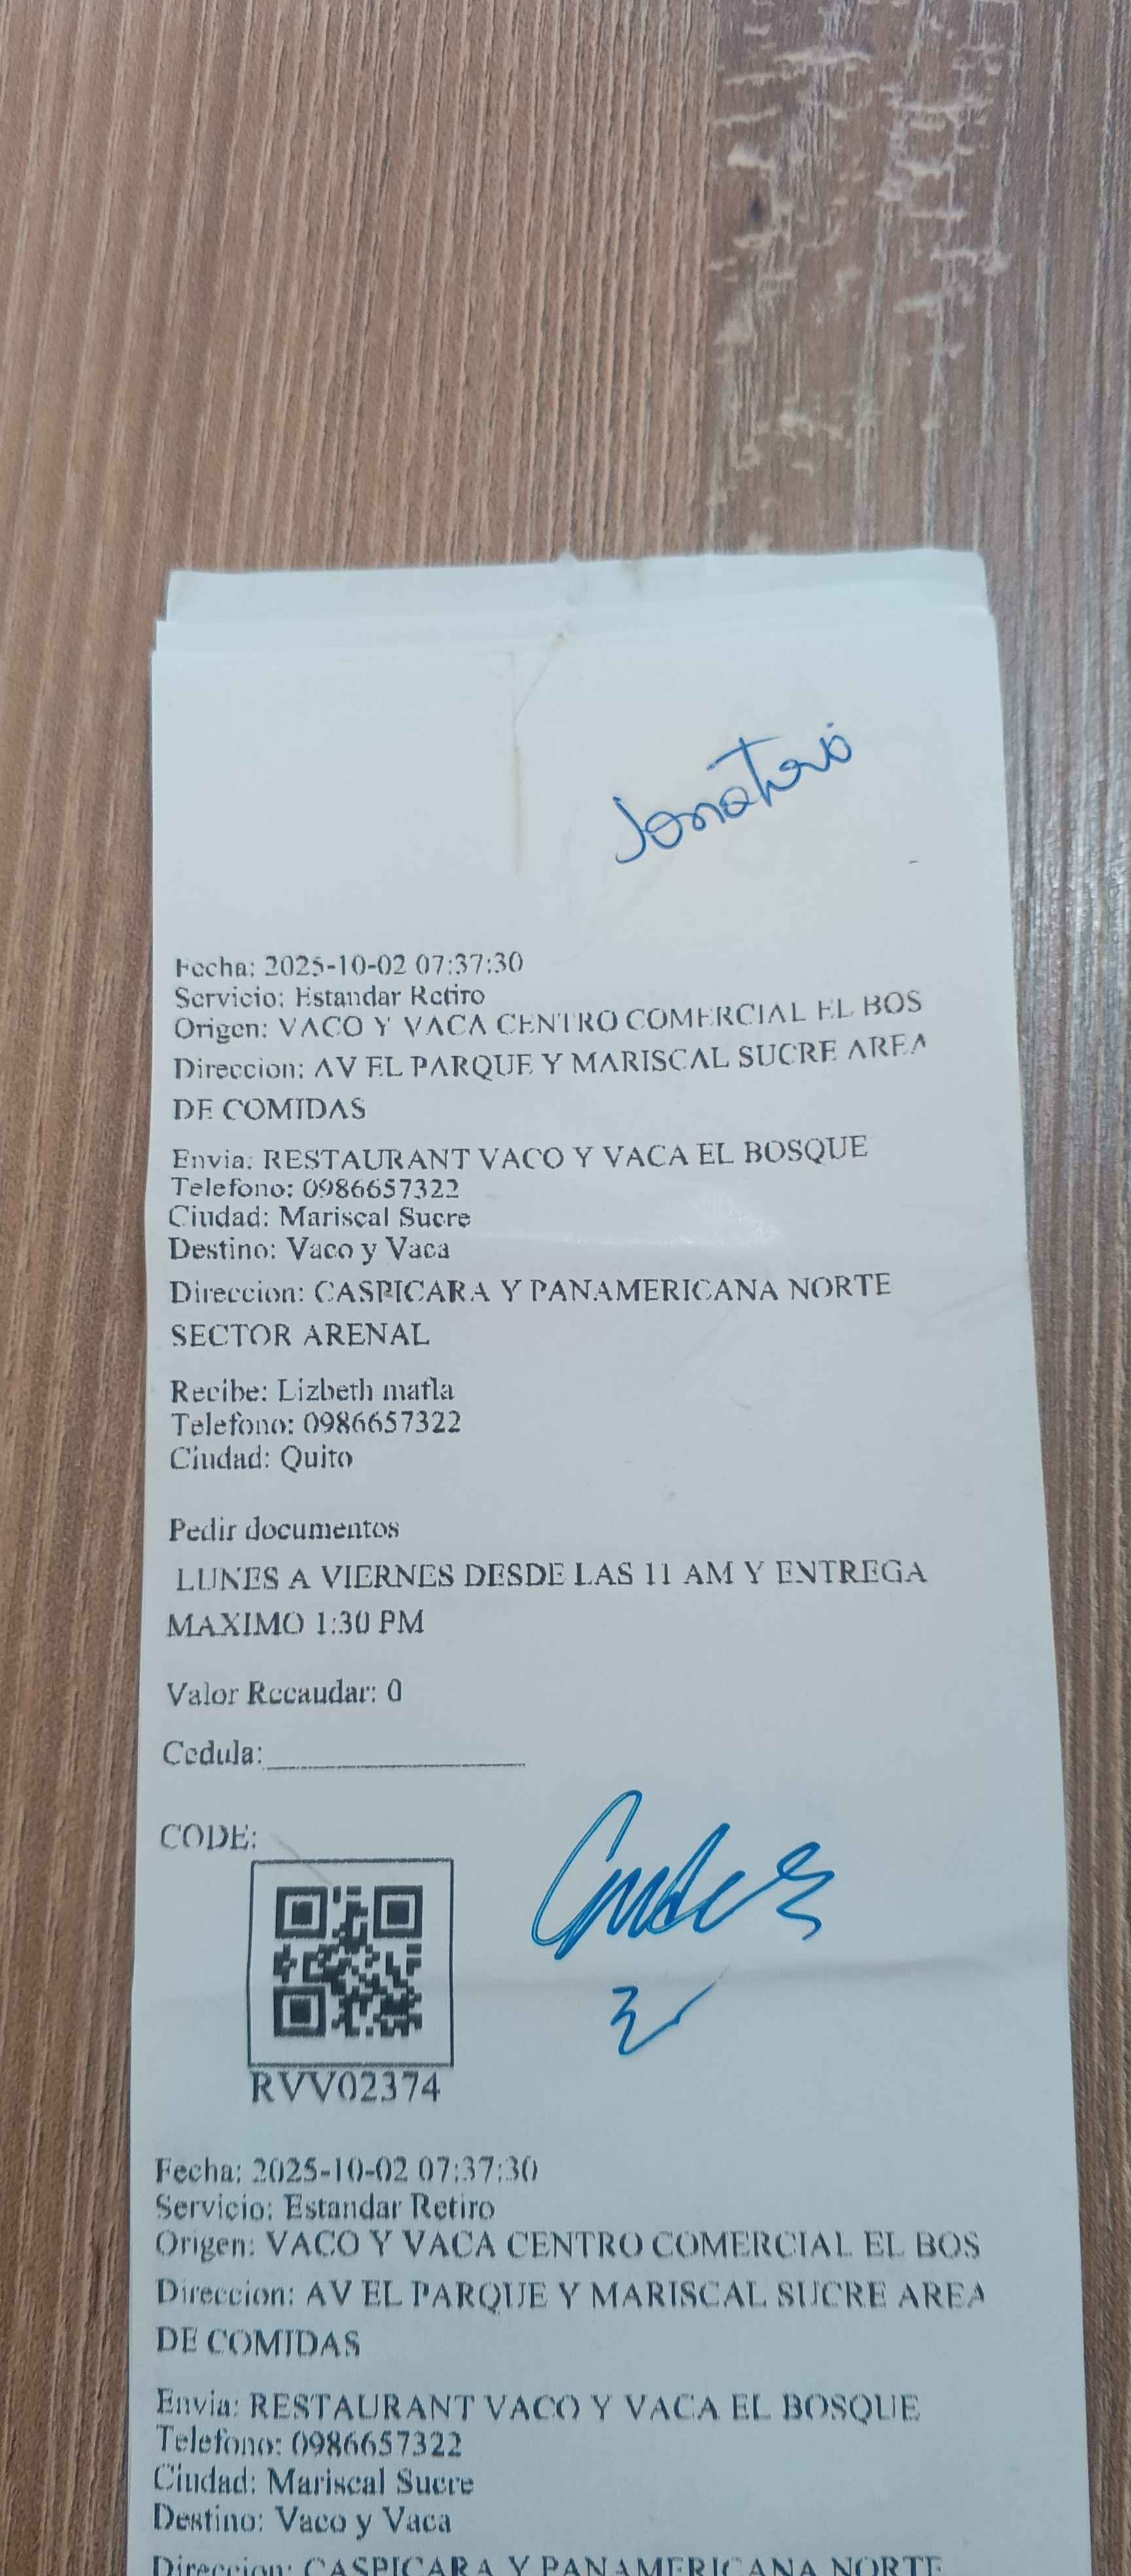 Fecha: 2025-10-02 07:37:30
Servicio: Estandar Retiro
Origen: VACO Y VACA CENTRO COMERCIAL EL BOS
Direccion: AV EL PARQUE Y MARISCAL SUCRE AREA
DE COMIDAS
Envia: RESTAURANT VACO Y VACA EL BOSQUE
Telefono: 0986657322
Ciudad: Mariscal Sucre
Destino: Vaco y Vaca
Direccion: CASPICARA Y PANAMERICANA NORTE
SECTOR ARENAL
Recibe: Lizbeth mafla
Telefono: 0986657322
Ciudad: Quito
Pedir documentos
LUNES A VIERNES DESDE LAS 11 AM Y ENTREGA
MAXIMO 1:30 PM
Valor Recaudar: 0
Cedula:
CODE:
RVV02374
Fecha: 2025-10-02 07:37:30
Servicio: Estandar Retiro
Origen: VACO Y VACA CENTRO COMERCIAL EL BOS
Direccion: AV EL PARQUE Y MARISCAL SUCRE AREA
DE COMIDAS
Envia: RESTAURANT VACO Y VACA EL BOSQUE
Telefono: 0986657322
Ciudad: Mariscal Sucre
Destino: Vaco y Vaca
Direccion: CASPICARA Y PANAMERICANA NORTE